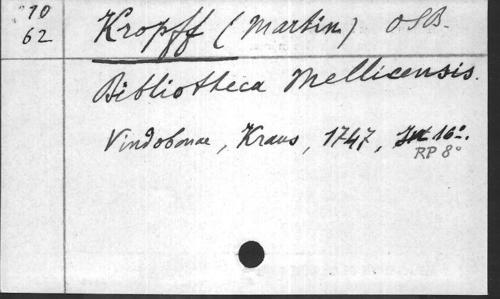 70
62
Kropff (Martin) OSB.
Bibliotheca Mellicensis.
Vindobonae, Kraus, 1747, 16°.
RP 8°